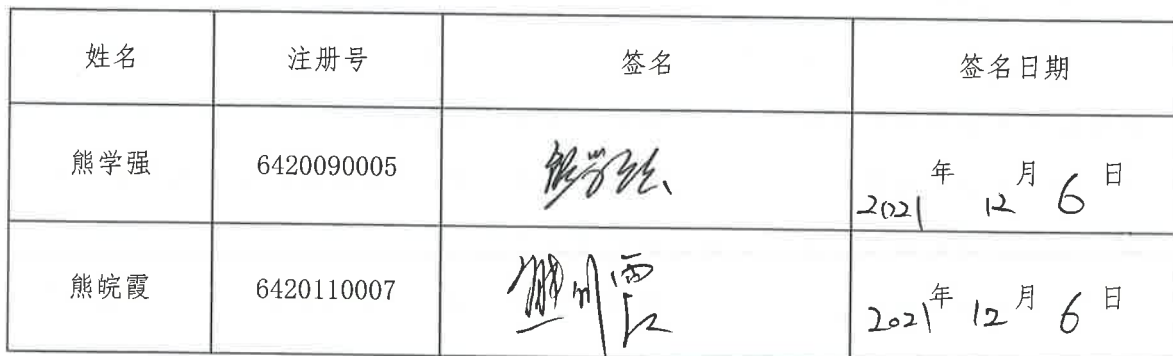 姓名 注册号 签名 签名日期
熊学强 6420090005 熊学强 2021年 12月 6日
熊皖霞 6420110007 熊皖霞 2021年 12月 6日